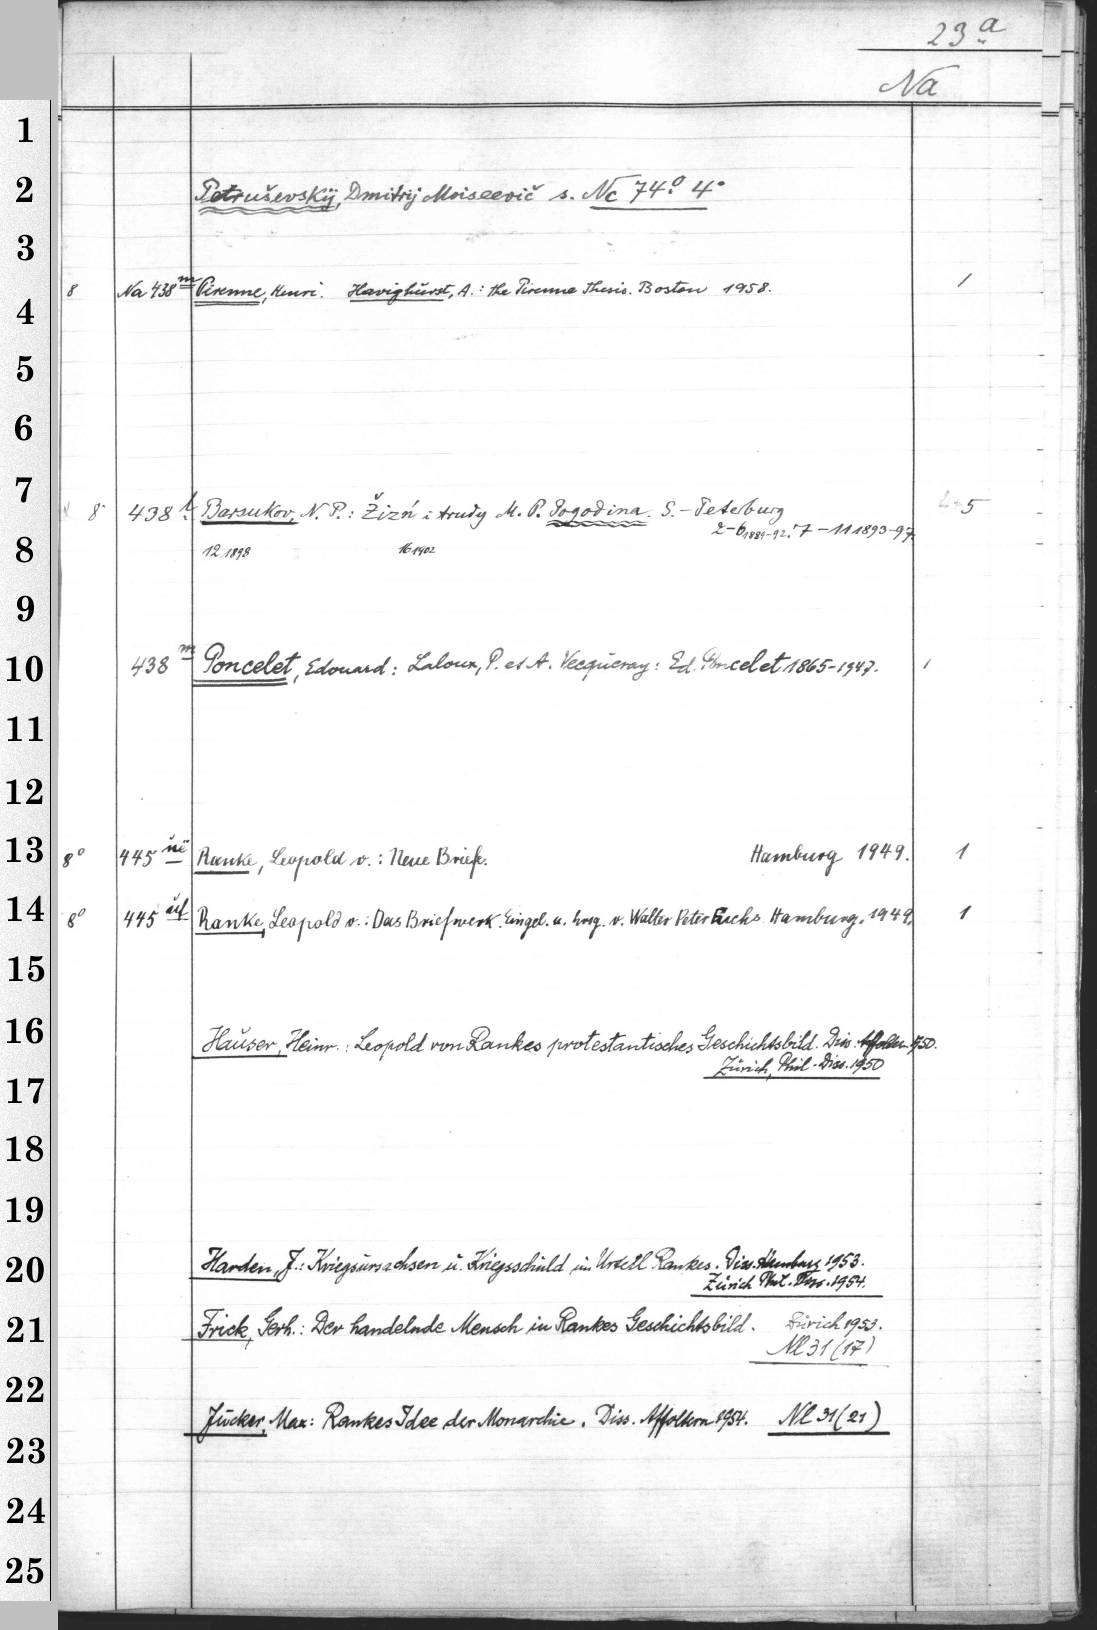 23a
Na
1
2 Petruševskij, Dmitrij Moiseevič s. Nc 74o 4°
3
8 Na 438m Pirenne, Henri. Havighurst, A.: the Pirenne Thesis. Boston 1958. 1
4
5
6
7
8 438 Barsukov, N. P.: Žizń i trudy M. P. Pogodina. S.-Peterburg 5
2-6 1889-92. 7-11 1893-97.
8 12 1898 16 1902
9
10 438m Poncelet, Edouard: Laloux, P. et A. Vecqueray: Ed. Poncelet 1865-1947. 1
11
12
13 8° 445 Ranke, Leopold v.: Neue Briefe. Hamburg 1949. 1
14 8° 445 Ranke, Leopold v.: Das Briefwerk. Eingel. u. hrsg. v. Walter Peter Fuchs. Hamburg. 1949. 1
15
16 Hauser, Heinr.: Leopold von Rankes protestantisches Geschichtsbild. Diss. Affoltern 1950.
Zürich, Phil.-Diss. 1950
17
18
19
20 Harden, J.: Kriegsursachsen u. Kriegsschuld im Urteil Rankes. Diss. Hamburg 1953.
Zürich Phil. Diss. 1954.
21 Frick, Gerh.: Der handelnde Mensch in Rankes Geschichtsbild. Zürich 1953.
Nl 31 (17)
22
Jucker, Max: Rankes Idee der Monarchie. Diss. Affoltern 1954. Nl 31 (21)
23
24
25